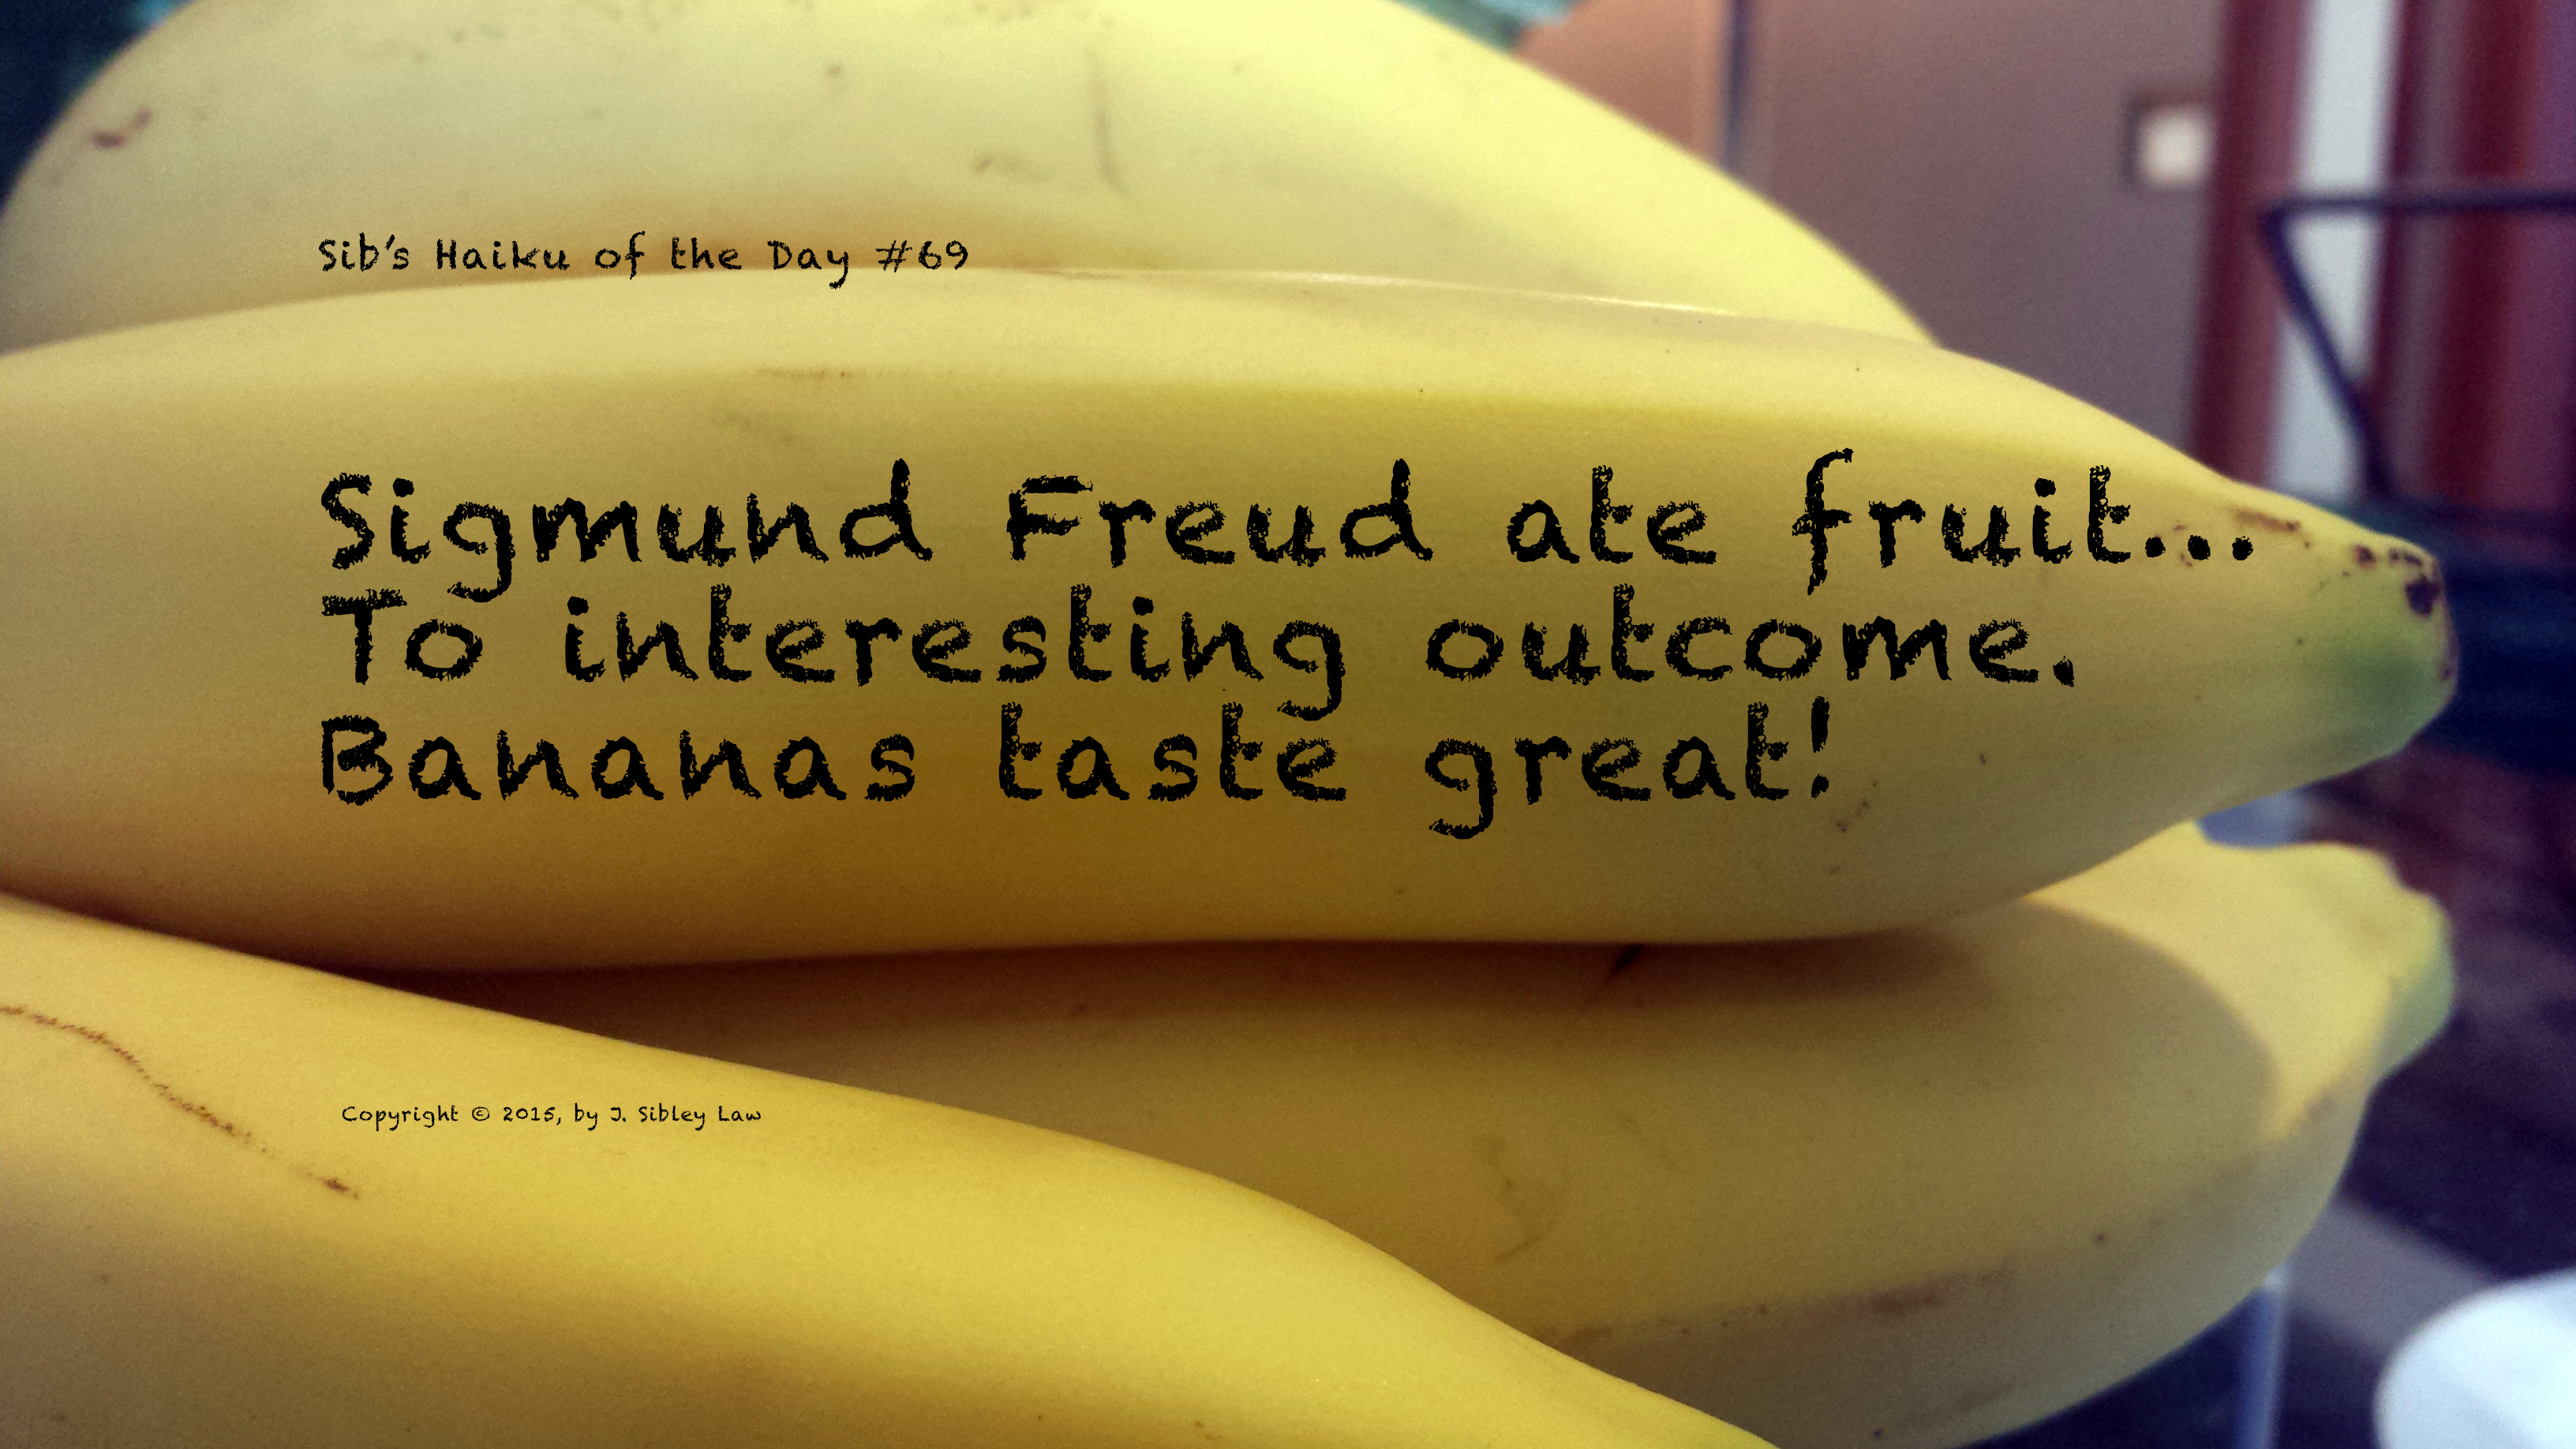 Sib's Haiku of the Day #69
Sigmund Freud ate fruit...
To interesting outcome.
Bananas taste great!
Copyright © 2015, by J. Sibley Law